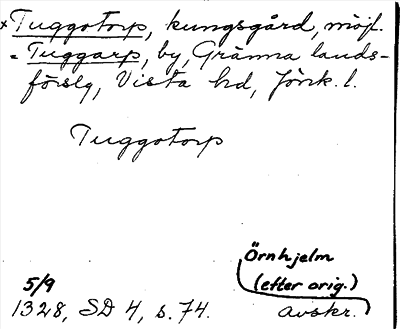 × Tuggotorp, kungsgård, möjl.
= Tuggarp, by, Gränna lands-
förslg, Vista hd, Jönk. l.
Tuggotorp
Örnhjelm
5/9 (efter orig.)
1328, SD 4, s. 74. avskr.